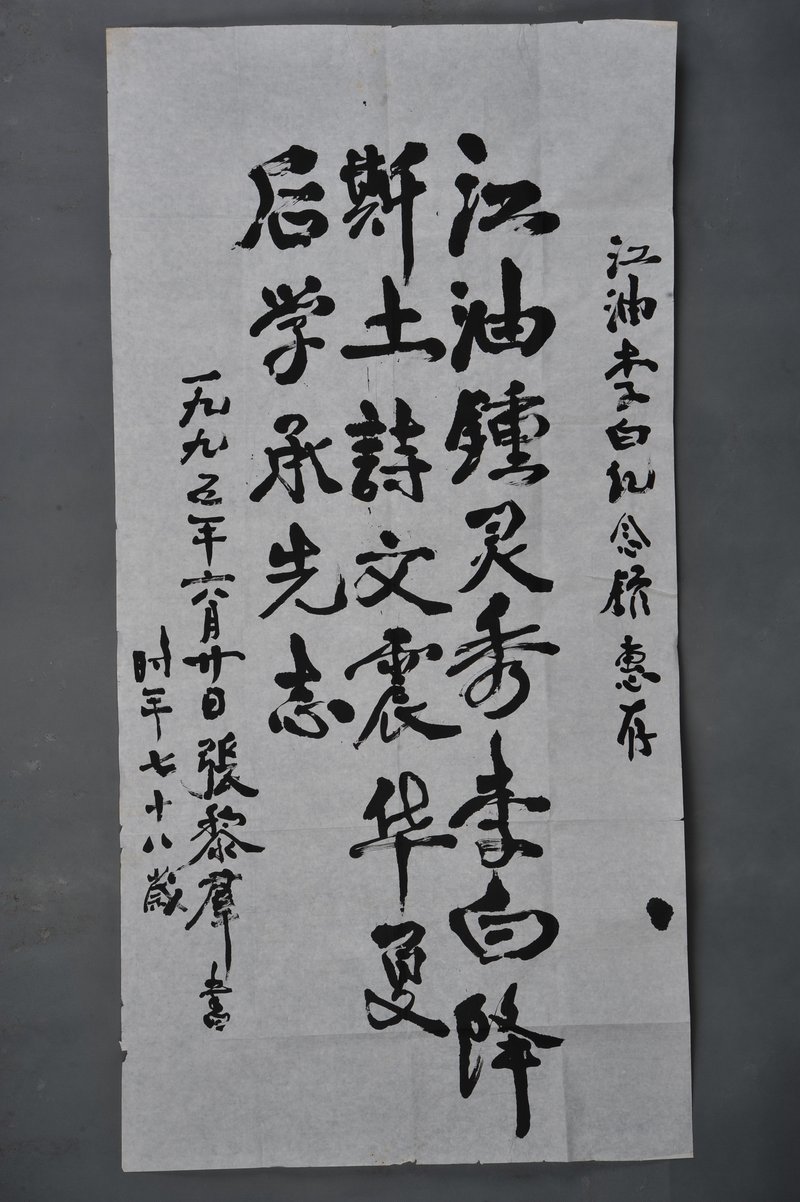 江油李白纪念馆惠存
江油鍾灵秀李白降
斯土詩文震华夏
后学承先志
一九九五年六月廿日張黎群書
时年七十八歲